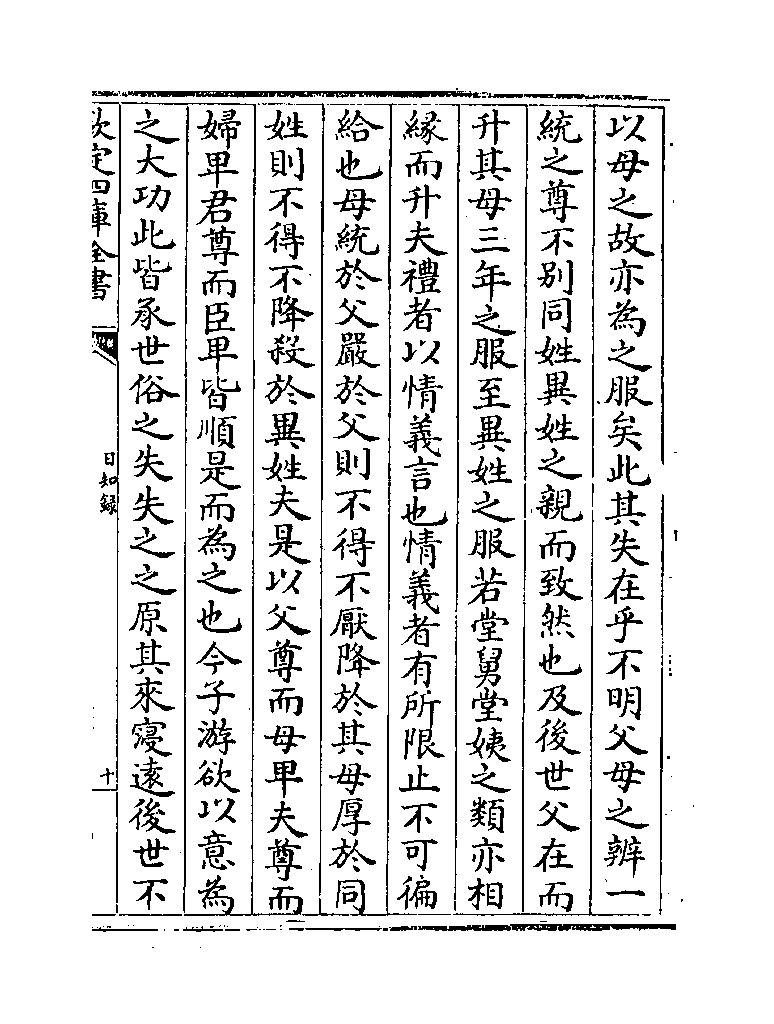 以母之故亦為之服矣此其失在乎不明父母之辨一
統之尊不别同姓異姓之親而致然也及後世父在而
升其母三年之服至異姓之服若堂舅堂姨之類亦相
縁而升夫禮者以情義言也情義者有所限止不可徧
給也母統於父嚴於父則不得不厭降於其母厚於同
姓則不得不降殺於異姓夫是以父尊而母卑夫尊而
婦卑君尊而臣卑皆順是而為之也今子游欲以意為
之大功此皆承世俗之失失之之原其來寖逺後世不
欽定四庫全書
日知録
十